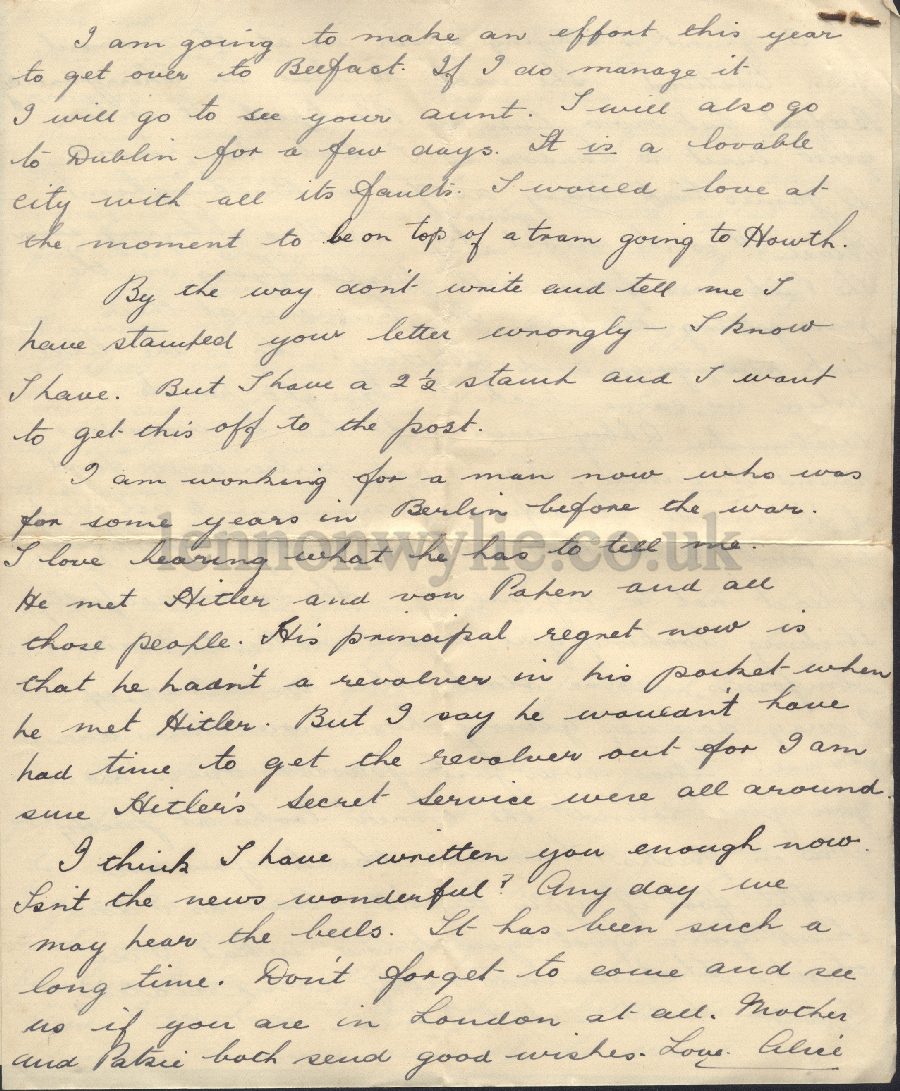 I am going to make an effort this year
to get over to Belfast. If I do manage it
I will go to see your aunt. I will also go
to Dublin for a few days. It is a lovable
city with all its faults. I would love at
the moment to be on top of a tram going to Howth.
By the way don't write and tell me I
have stamped your letter wrongly — I know
I have. But I have a 2½ stamp and I want
to get this off to the post.
I am working for a man now who was
for some years in Berlin before the war.
lennonwylie.co.uk
I love hearing what he has to tell me.
He met Hitler and von Papen and all
those people. His principal regret now is
that he hadn't a revolver in his pocket when
he met Hitler. But I say he wouldn't have
had time to get the revolver out for I am
sure Hitler's Secret Service were all around.
I think I have written you enough now.
Isn't the news wonderful? Any day we
may hear the bells. It has been such a
long time. Don't forget to come and see
us if you are in London at all. Mother
and Patsie both send good wishes. Love. Alice